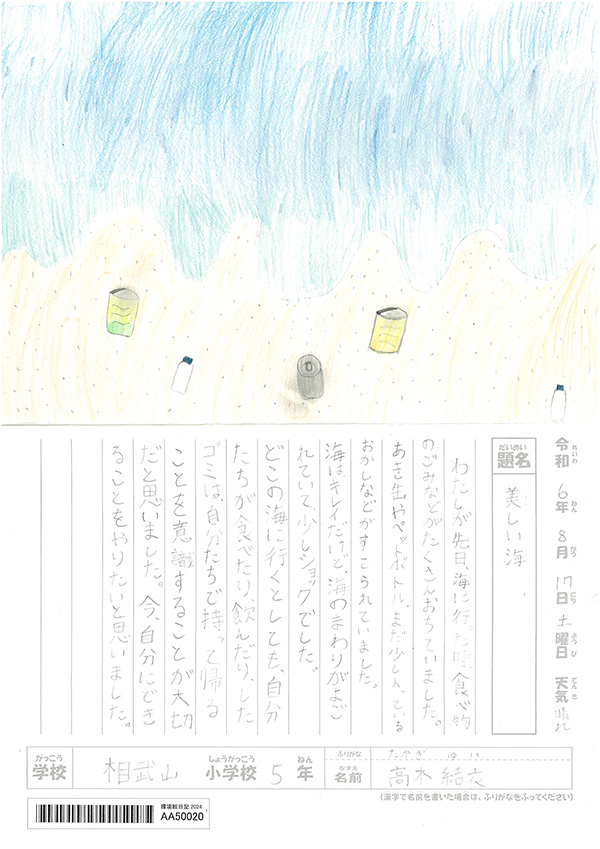 令和6年8月17日土曜日 天気 晴れ
れいわ ねん がつ にち ようび てんき
だいめい
題名
美しい海
わたしが先日、海に行った時、食べ物
のごみなどがたくさんおちていました。
あき缶やペットボトル、まだ少し入っている
おかしなどがすてられていました。
海は、キレイだけど、海のまわりがよご
れていて、少しショックでした。
どこの海に行くとしても、自分
たちが食べたり、飲んだり、した
ゴミは、自分たちで持って帰る
ことを意識することが大切
だと思いました。今、自分にでき
ることをやりたいと思いました。
がっこう しょうがっこう ねん
学校 相武山 小学校 5 年
ふりがな たかぎ ゆい
なまえ
名前 高木 結衣
(漢字で名前を書いた場合は、ふりがなをふってください)
環境絵日記 2024
AA50020